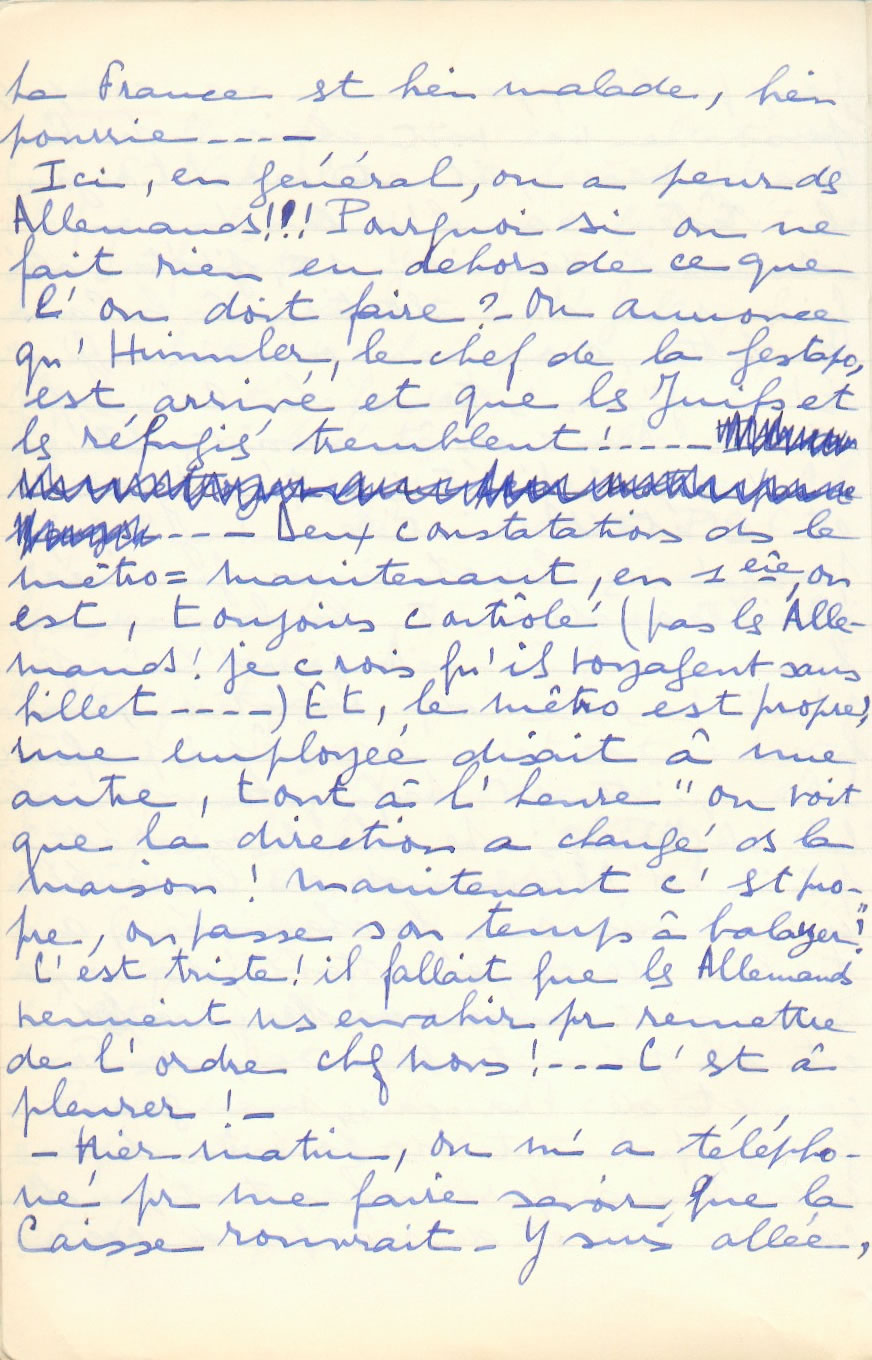 La France est bien malade, bien
pourrie ----
Ici, en général, on a peur ds
Allemands!!! Pourquoi si on ne
fait rien en dehors de ce que
l'on doit faire? - On annonce
qu'Himmler, le chef de la gestapo,
est arrivé et que ls Juifs et
ls réfugiés tremblent! ----
---- Deux constatations ds le
métro = maintenant, en 1ère, on
est, toujours contrôlé (pas ls Alle-
mands! je crois qu'ils voyagent sans
billet ----) Et, le métro est propre,
une employée disait à une
autre, tout à l'heure "on voit
que la direction a changé ds la
maison! maintenant c'est pro-
pre, on passe son temps à balayer!"
C'est triste! il fallait que ls Allemands
viennent ns envahir pr remettre
de l'ordre chez nous! --- C'est à
pleurer! -
- Hier matin, on m'a télépho-
né pr me faire savoir que la
Caisse rouvrait - Y suis allée,